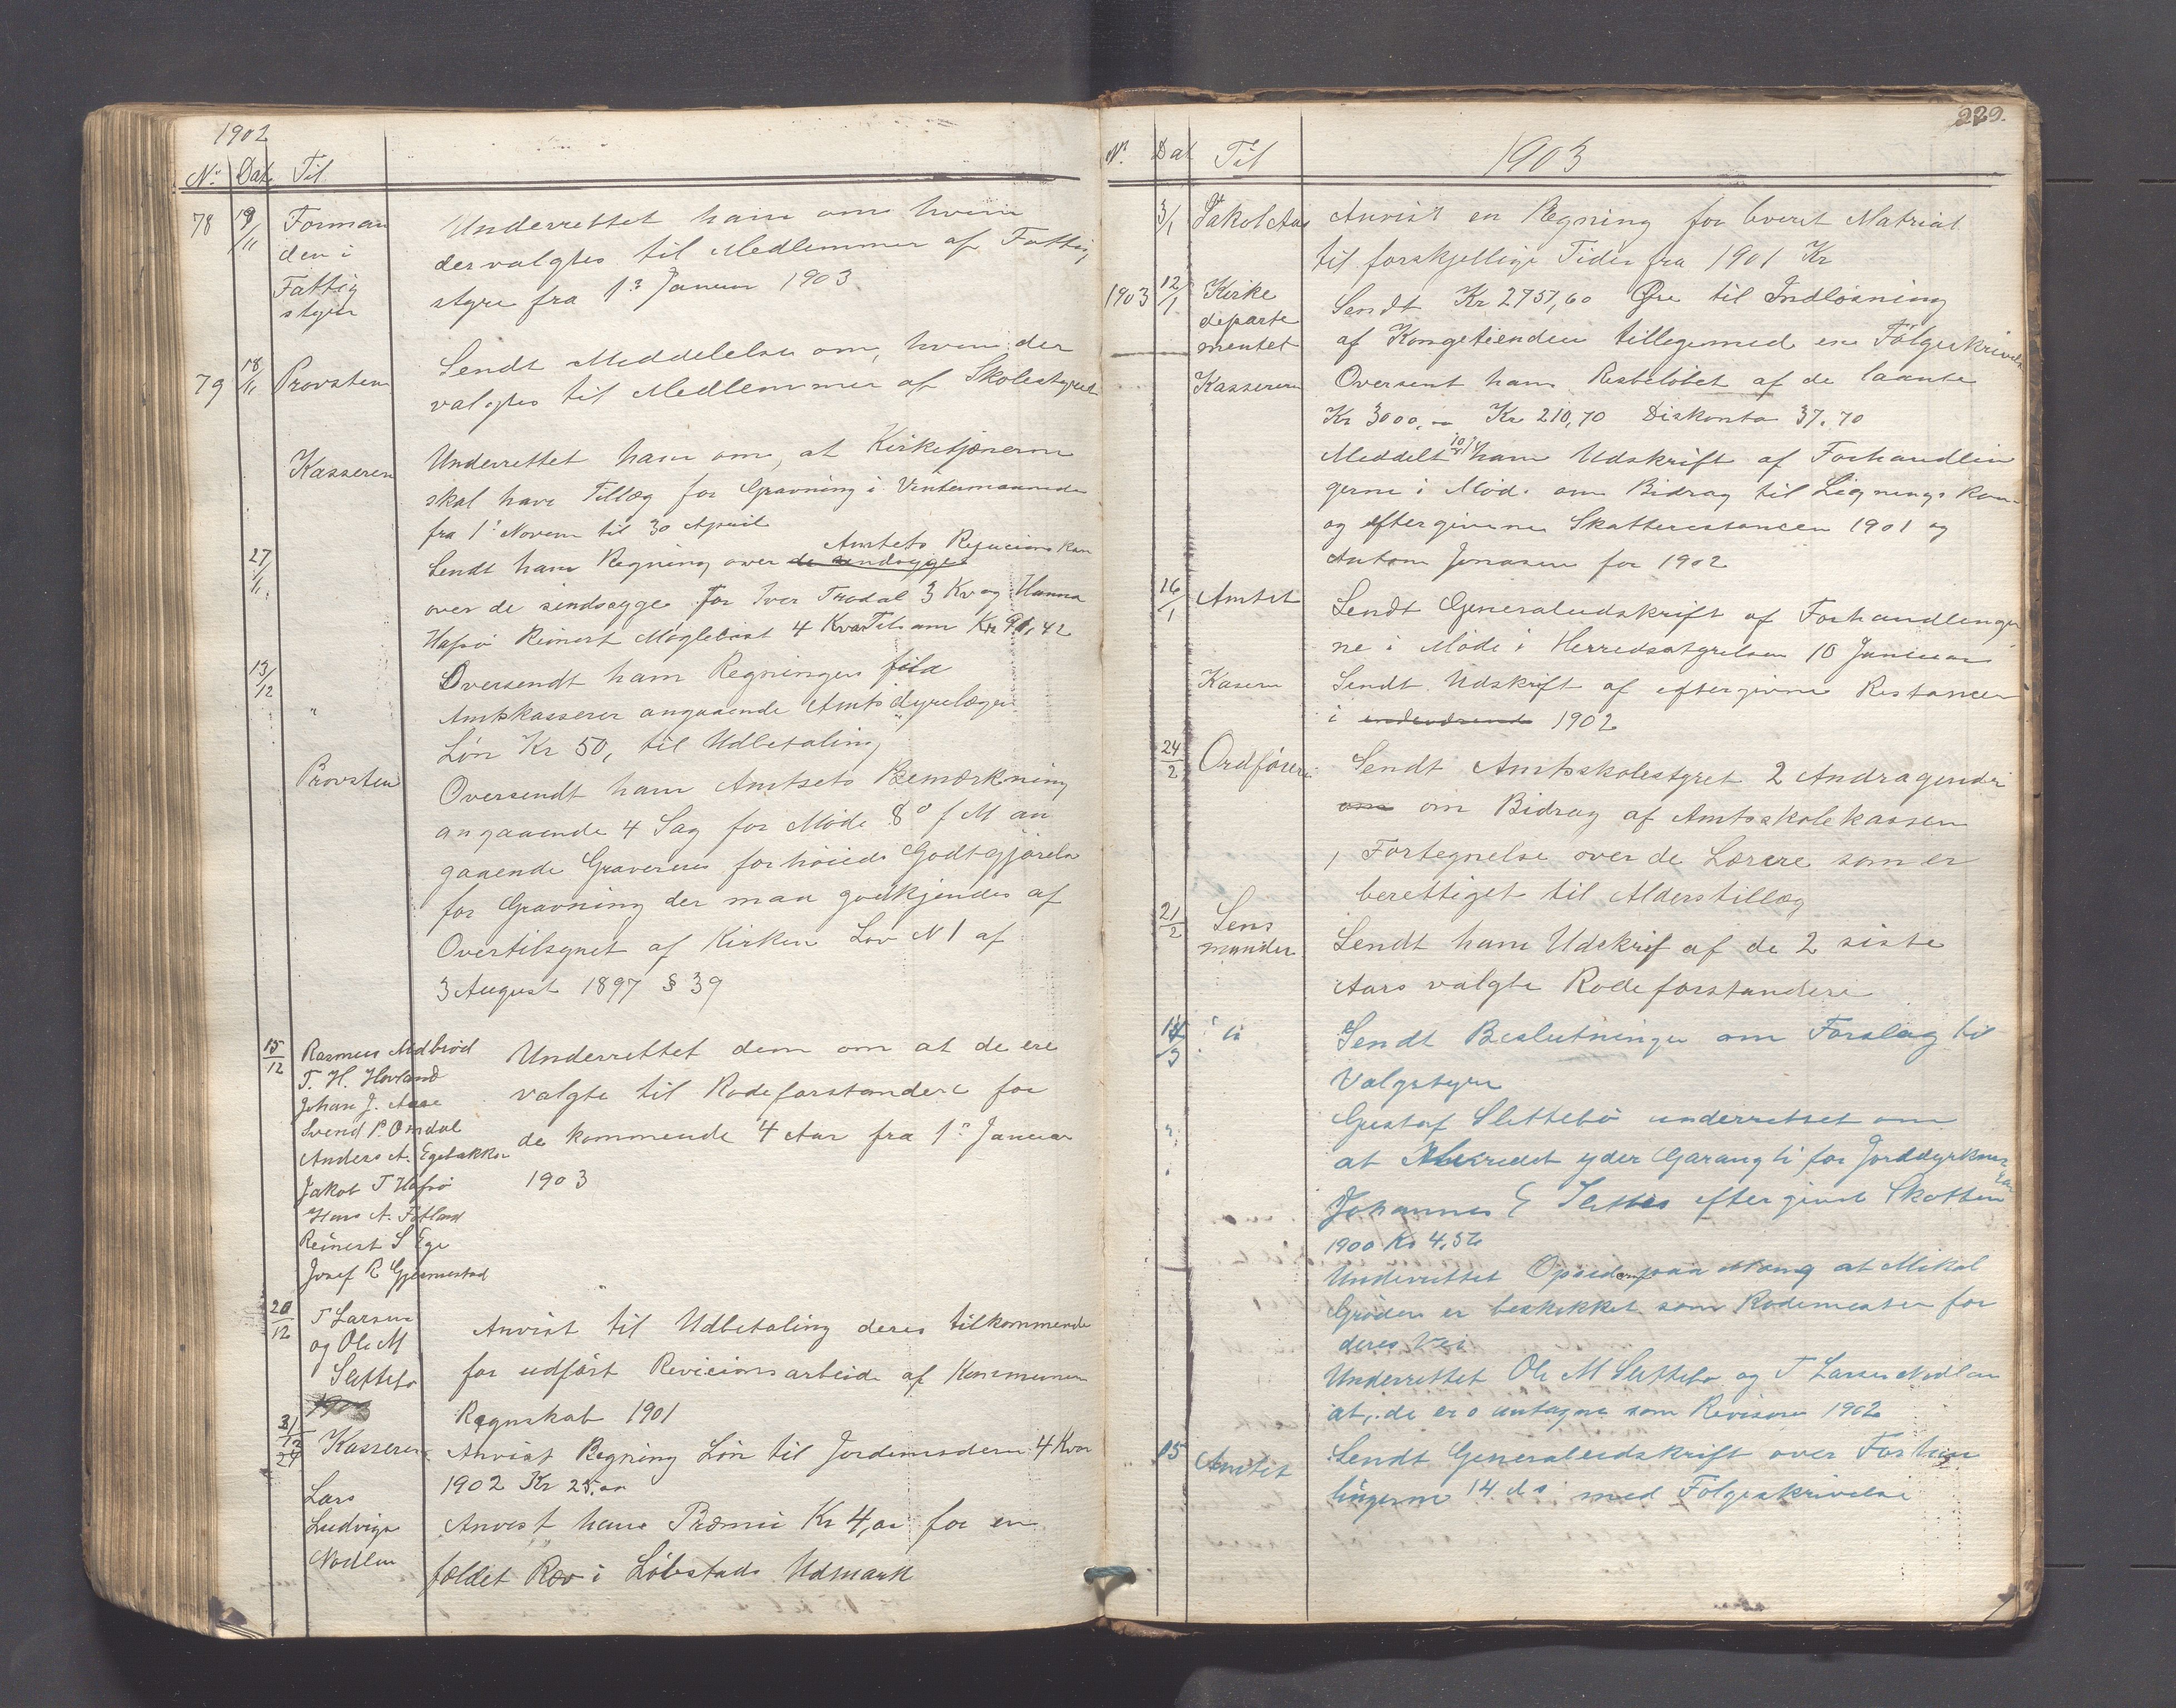 1902
No Dat Til
78 19/11 Forman
den i
Fattig
styre
Underrettet ham om hvem
der valgtes til Medlemmer af Fattig
styre fra 1ste Januar 1903
79 18/11 Provsten
Sendt Meddelelse om, hvem der
valgtes til Medlemmer af Skolestyret
Kasseren
Underrettet ham om, at Kirketjeneren
skal have Tillæg for Gravning i Vintermaaneder
fra 1ste Novem til 30 April
27/11
Sendt ham Regning over de sindsyge Amtets
over de sindssyge for Iver Trodal 3 Kv og Hanna
Hafsø Reinert Møglebust 4 Kvartal sam Kr 91,42
13/12 "
Oversendt ham Regningen fila
Amtskasserer angaaende Amtsdyrelægen
Løn Kr 50, til Udbetaling
Provsten
Oversendt ham Amtsets Bemærkning
angaaende 4 Sag for Møde 8o f M an
gaaende Graverens forhøiede Godtgjørelse
for Gravning der maa godkjendes af
Overtilsynet af Kirken Lov N 1 af
3 August 1897 § 39
15/12 Rasmus Midbrød
T. H. Hovland
Johan J. Aase
Svend P. Omdal
Anders A. Egebakken
Jakob T Hafsø
Hans A. Fotland
Reinert S Ege
Josef R Gjermestad
Underrettet dem om at de ere
valgte til Rodeforstandere for
de kommende 4 Aar fra 1ste Januar
1903
20/12 T Larsen
og Ole M
Slettebø
Anvist til Udbetaling deres tilkommende
for udført Revicionsarbeide af Kommunen
Regnskab 1901
1903
31/12 Kasseren
Anvist Regning Løn til Jordemoderen 4 Kvar
1902 Kr 25.00
Lars
Ludvigs
Nodlan
Anvist ham Præmie Kr 4,00 for en
fældet Ræv i Løbstads Udmark
229.
No Dat Til 1903
3/1 Jakob Aas
Anvist en Regning for leveret Matrial
til forskjellige Tider fra 1901 Kr
1903 12/1 Kirke
departe
mentet
Sendt Kr 2751,60 Øre til Indløsning
af Kongetienden tillegemed en Følgeskrivelse
Kasseren
Oversent ham Restbeløbet af de laante
Kr 3000,00 Kr 210,70 Diskonto 37.70
Meddelt 10/1 ham Udskrift af Forhandlin
gerne i Møde om Bidrag til Lignings Kom
og eftergivne Skatterestancer 1901 og
Anton Jonasen for 1902
16/1 Amtet
Sendt Generaludskrift af Forhandlinger
ne i Møde i Herredsstyrelsen 10 Januar
Kasern
Sendt Udskrift af eftergivne Restancer
i 1902
24/2 Ordføreren
Sendt Amtsskolestyret 2 Andragender
om om Bidrag af Amtsskolekassen
, Fortegnelse over de Lærere som er
berettiget til Alderstillæg
21/2 Lens
manden
Sendt ham Udskrif af de 2 siste
Aars valgte Rodeforstandere
14/3 " "
Sendt Beslutninger om Forslag til
Valgstyre
Gustaf Slettebø underrettet om
at Herredet yder Garangti for Jorddyrknings
laan
Johannes E Slettebø eftergivet Skatten
1900 Kr 4,56
Underrettet Opsederne paa Mong at Mikal
Grøden er beskikket som Rodemester for
deres Vei
Underrettet Ole M Slettebø og T Larsen Nodlan
at, de ero antagne som Revisorer 1902
15 Amtet
Sendt Generaludskrift over Forhan
lingerne 14. ds med Følgeskrivelse